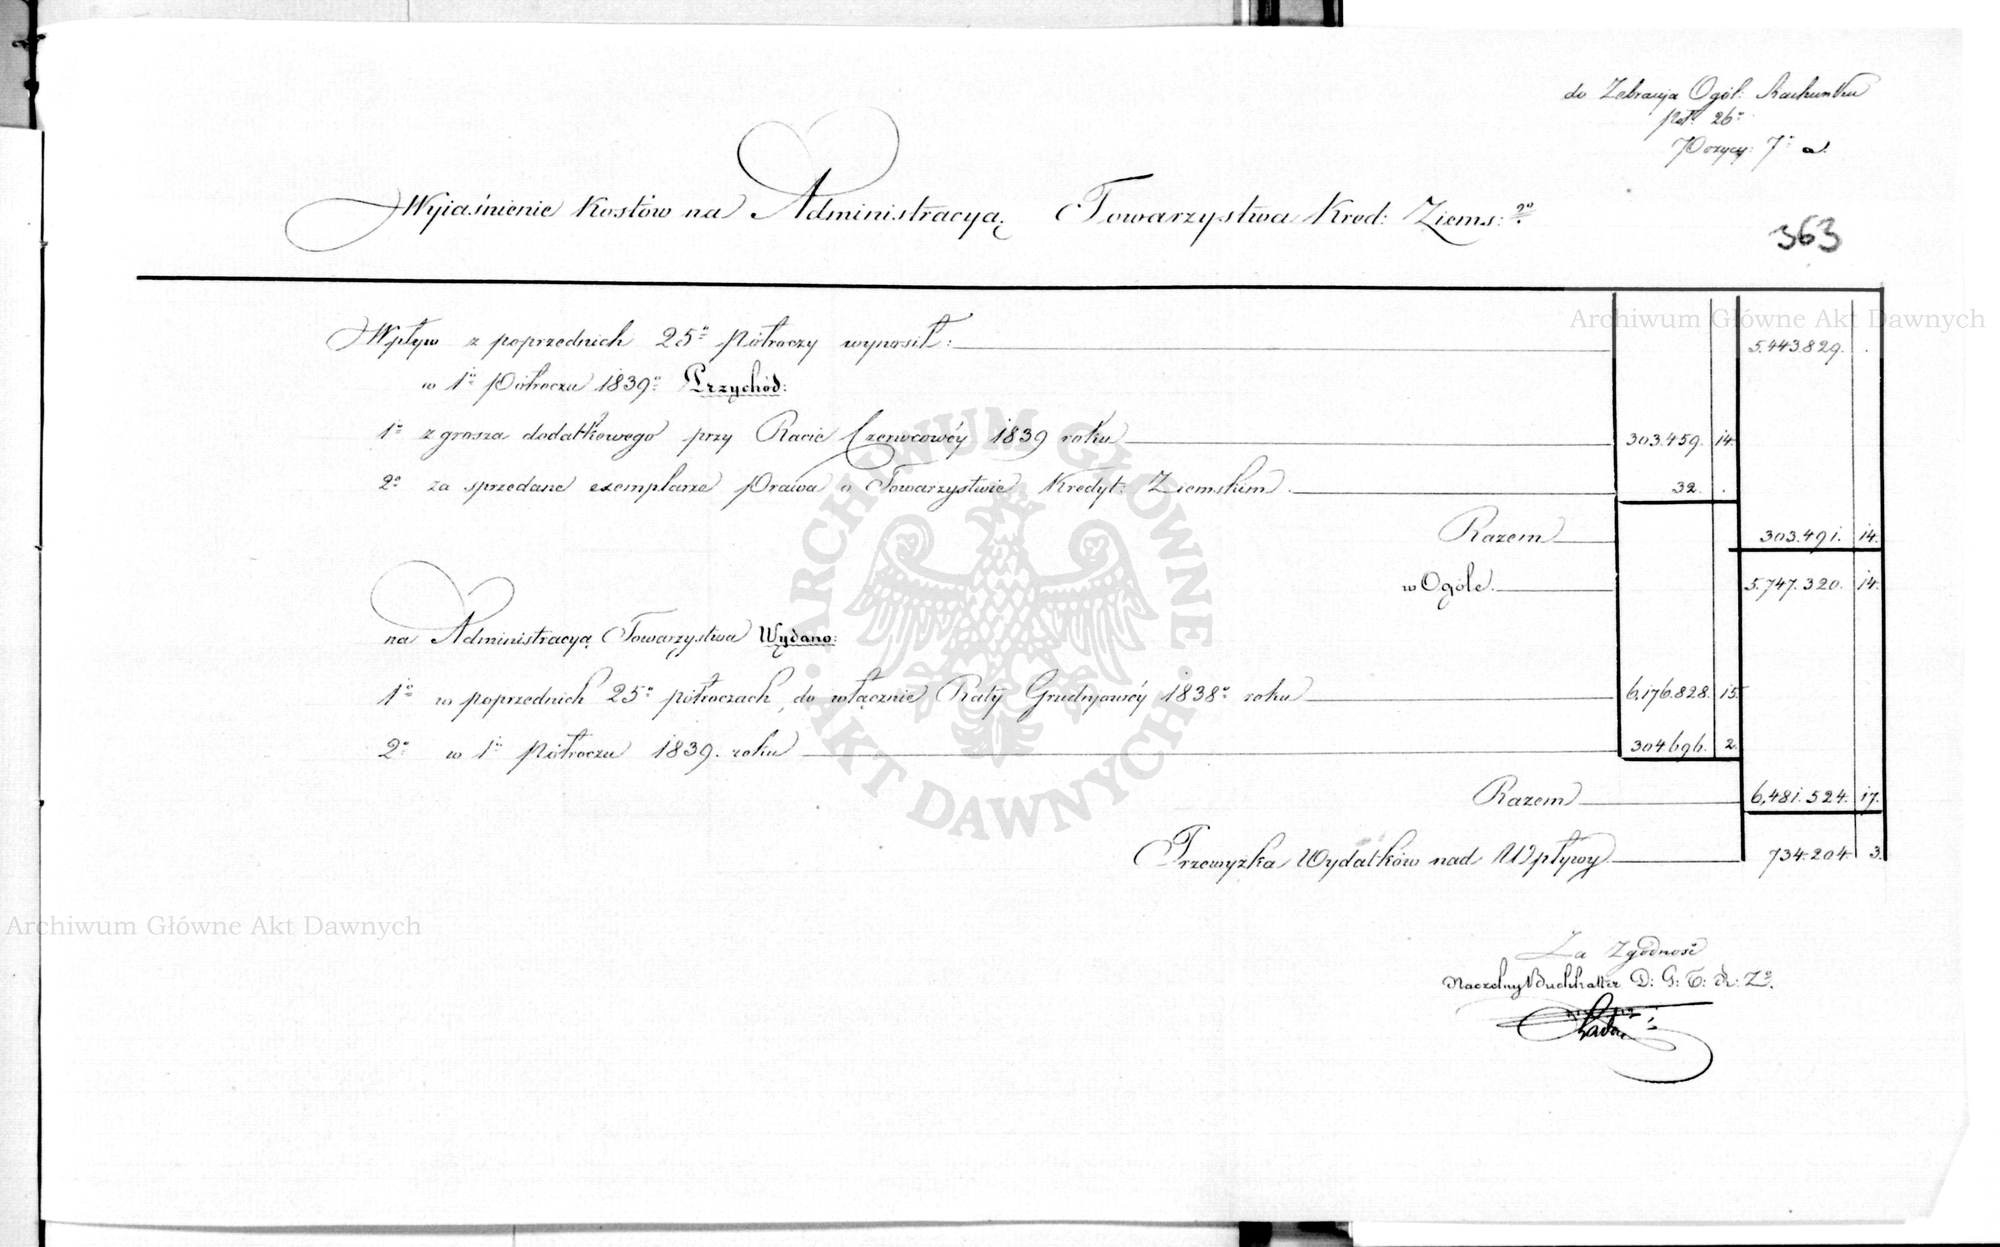 do Zebrania Ogól: Rachunku
Pół: 26º
Pozycyi 7º a.
Wyiaśnienie Kosztów na Administracyą Towarzystwa Kred: Ziems:º
363
Wpływ z poprzednich 25º Półroczy wynosił: 5.443.829. .
w 1º Półroczu 1839º Przychód:
1º z grosza dodatkowego przy Racie Czerwcowéy 1839 roku 303.459. 14.
2º za sprzedane exemplarze Prawa o Towarzystwie Kredyt: Ziemskim. 32. .
Razem 303.491. 14.
w Ogóle. 5.747.320. 14.
na Administracyą Towarzystwa Wydano:
1º w poprzednich 25º półroczach, do włącznie Raty Grudniowéy 1838º roku 6,176.828. 15.
2º w 1º Półroczu 1839. roku 304.696. 2.
Razem 6,481.524. 17.
Przewyzka Wydatków nad Wpływy 734.204. 3.
Za Zgodność
Naczelny Buchhalter D: G: T: K: Zº.
Archiwum Główne Akt Dawnych
Archiwum Główne Akt Dawnych
ARCHIWUM GŁÓWNE AKT DAWNYCH